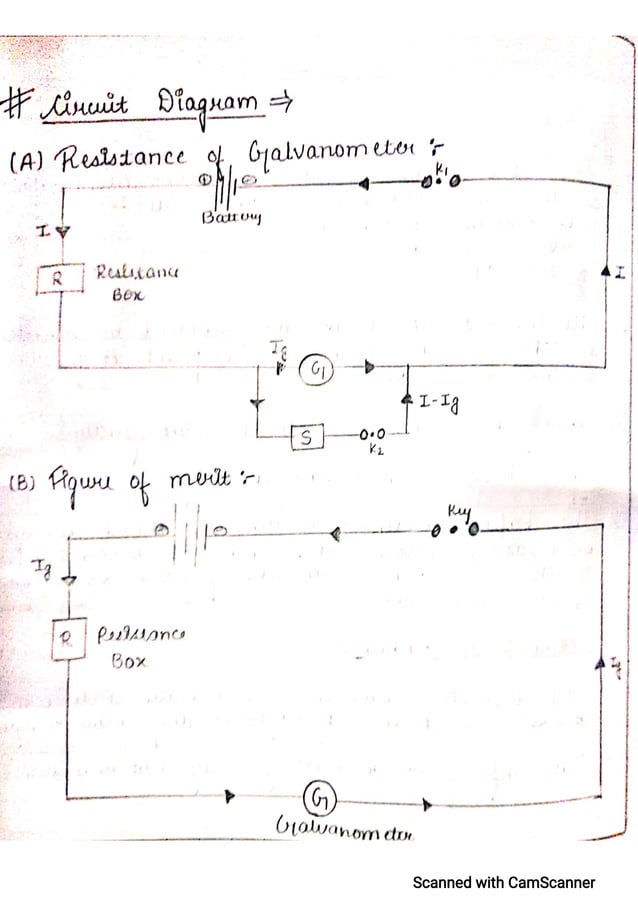 # Circuit Diagram ⇒
(A) Resistance of Galvanometer :-
K1
+ -
Battery
I
R Resistance
Box
I
Ig
G
I-Ig
S
K2
(B) Figure of merit :-
Key
Ig
R Resistance
Box
Ig
G
Galvanometer
Scanned with CamScanner